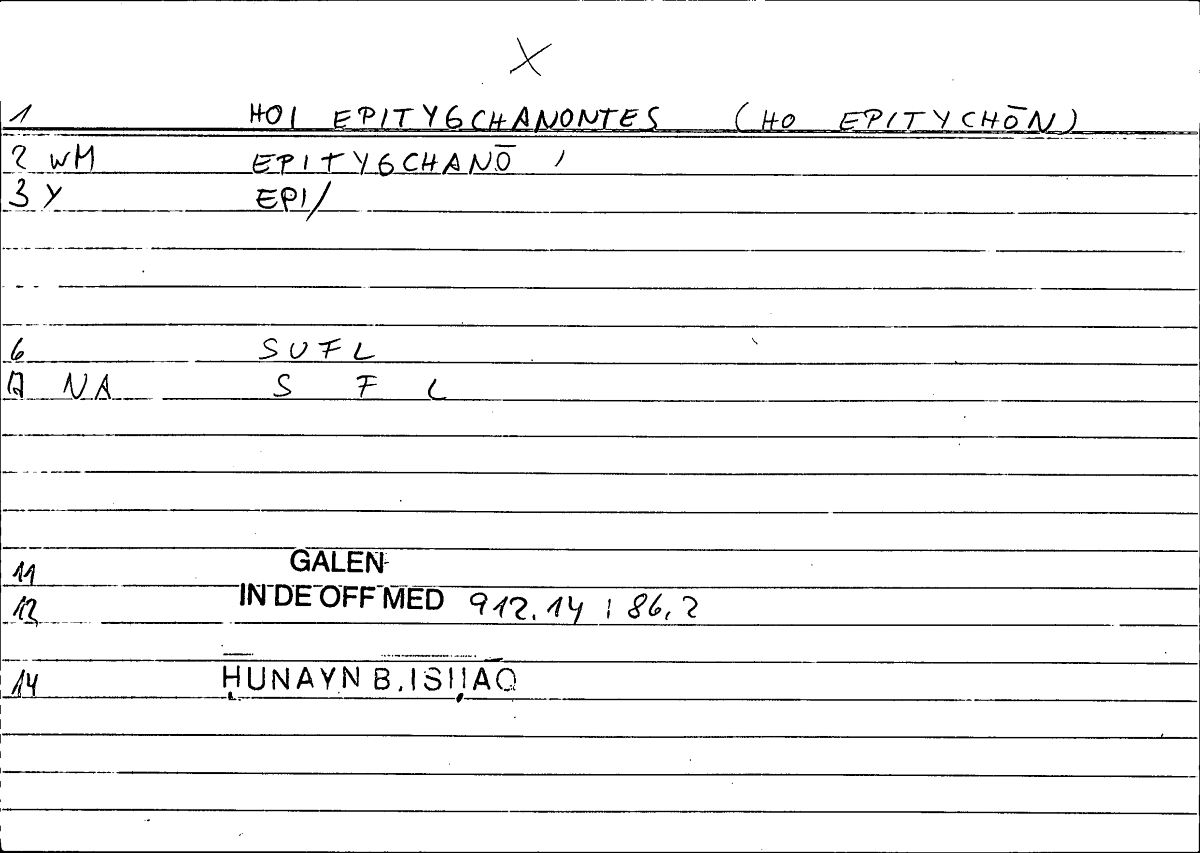 X
1 HOI EPITYGCHANONTES (HO EPITYCHŌN)
2 WM EPITYGCHANŌ /
3 Y EPI/
6 SUFL
A NA S F L
11 GALEN
12 IN DE OFF MED 912.14 ; 86,2
14 ḤUNAYN B. ISḤĀQ